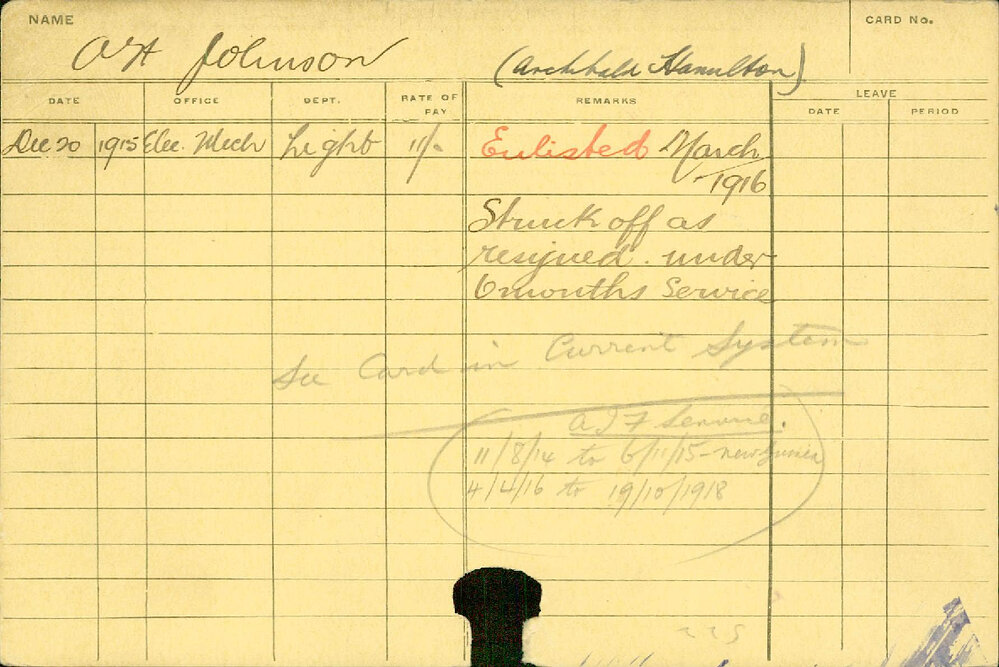 NAME
CARD No.
A H Johnson (Archibald Hamilton)
DATE OFFICE DEPT. RATE OF PAY REMARKS LEAVE
DATE PERIOD
Dec 20 1915 Elec. Mech Light 11/- Enlisted March
1916
Struck off as
resigned. under
6 months Service
See Card in Current System
A I F Service.
11/8/14 to 6/11/15 - New Guinea
4/4/16 to 19/10/1918